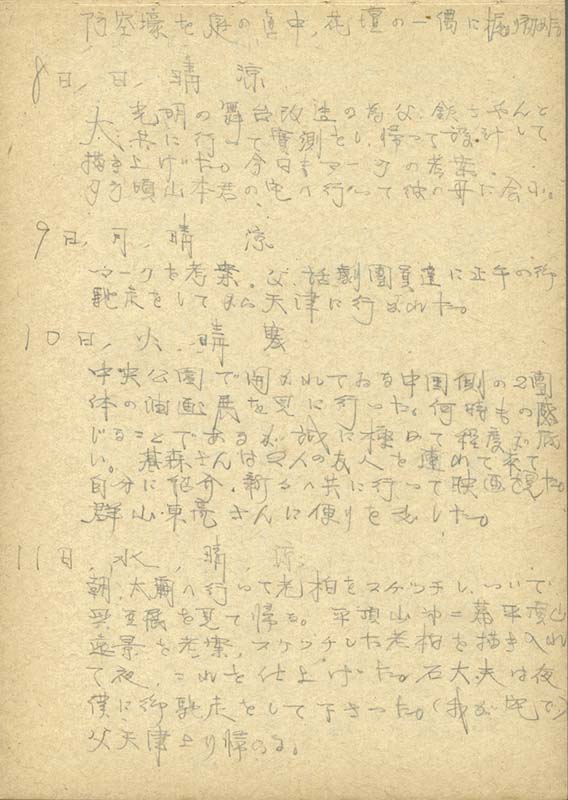 防空壕を庭の真中、花壇の一隅に掘り始め
8日、日、晴 涼
大光明の舞台改造の為父、
共に行って實測をし、帰って設計して
描き上げた。今日もマークの考案。
夕方頃山本君の宅へ行って彼の母に会ふ。
9日、月、晴 涼
マークを考案。父、話劇團員達に正午の御
馳走をしてから天津に行かれた。
10日、火、晴 寒
中央公園で開かれてゐる中国側の2團
体の油画展を見に行った。何時もの感
じることであるが誠に極めて程度が低
い。 森さんは2人の友人を連れて来て
自分に紹介、新々へ共に行って映画を見た。
群山・東亮さんに便りを出した。
11日、水、晴、涼
朝、太廟へ行って老柏をスケッチし、ついで
興亜展を見て帰る。平頂山 二幕平頂山
遠景を考案、スケッチした老柏を描き入れ
て夜、これを仕上げた。石大夫は夜
僕に御馳走をして下さった。(我が宅で)
父天津より帰へる。